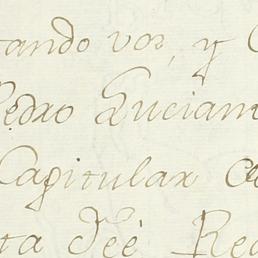 tando vos, y
Pedro Lucian
Capitular
ta deè Rea